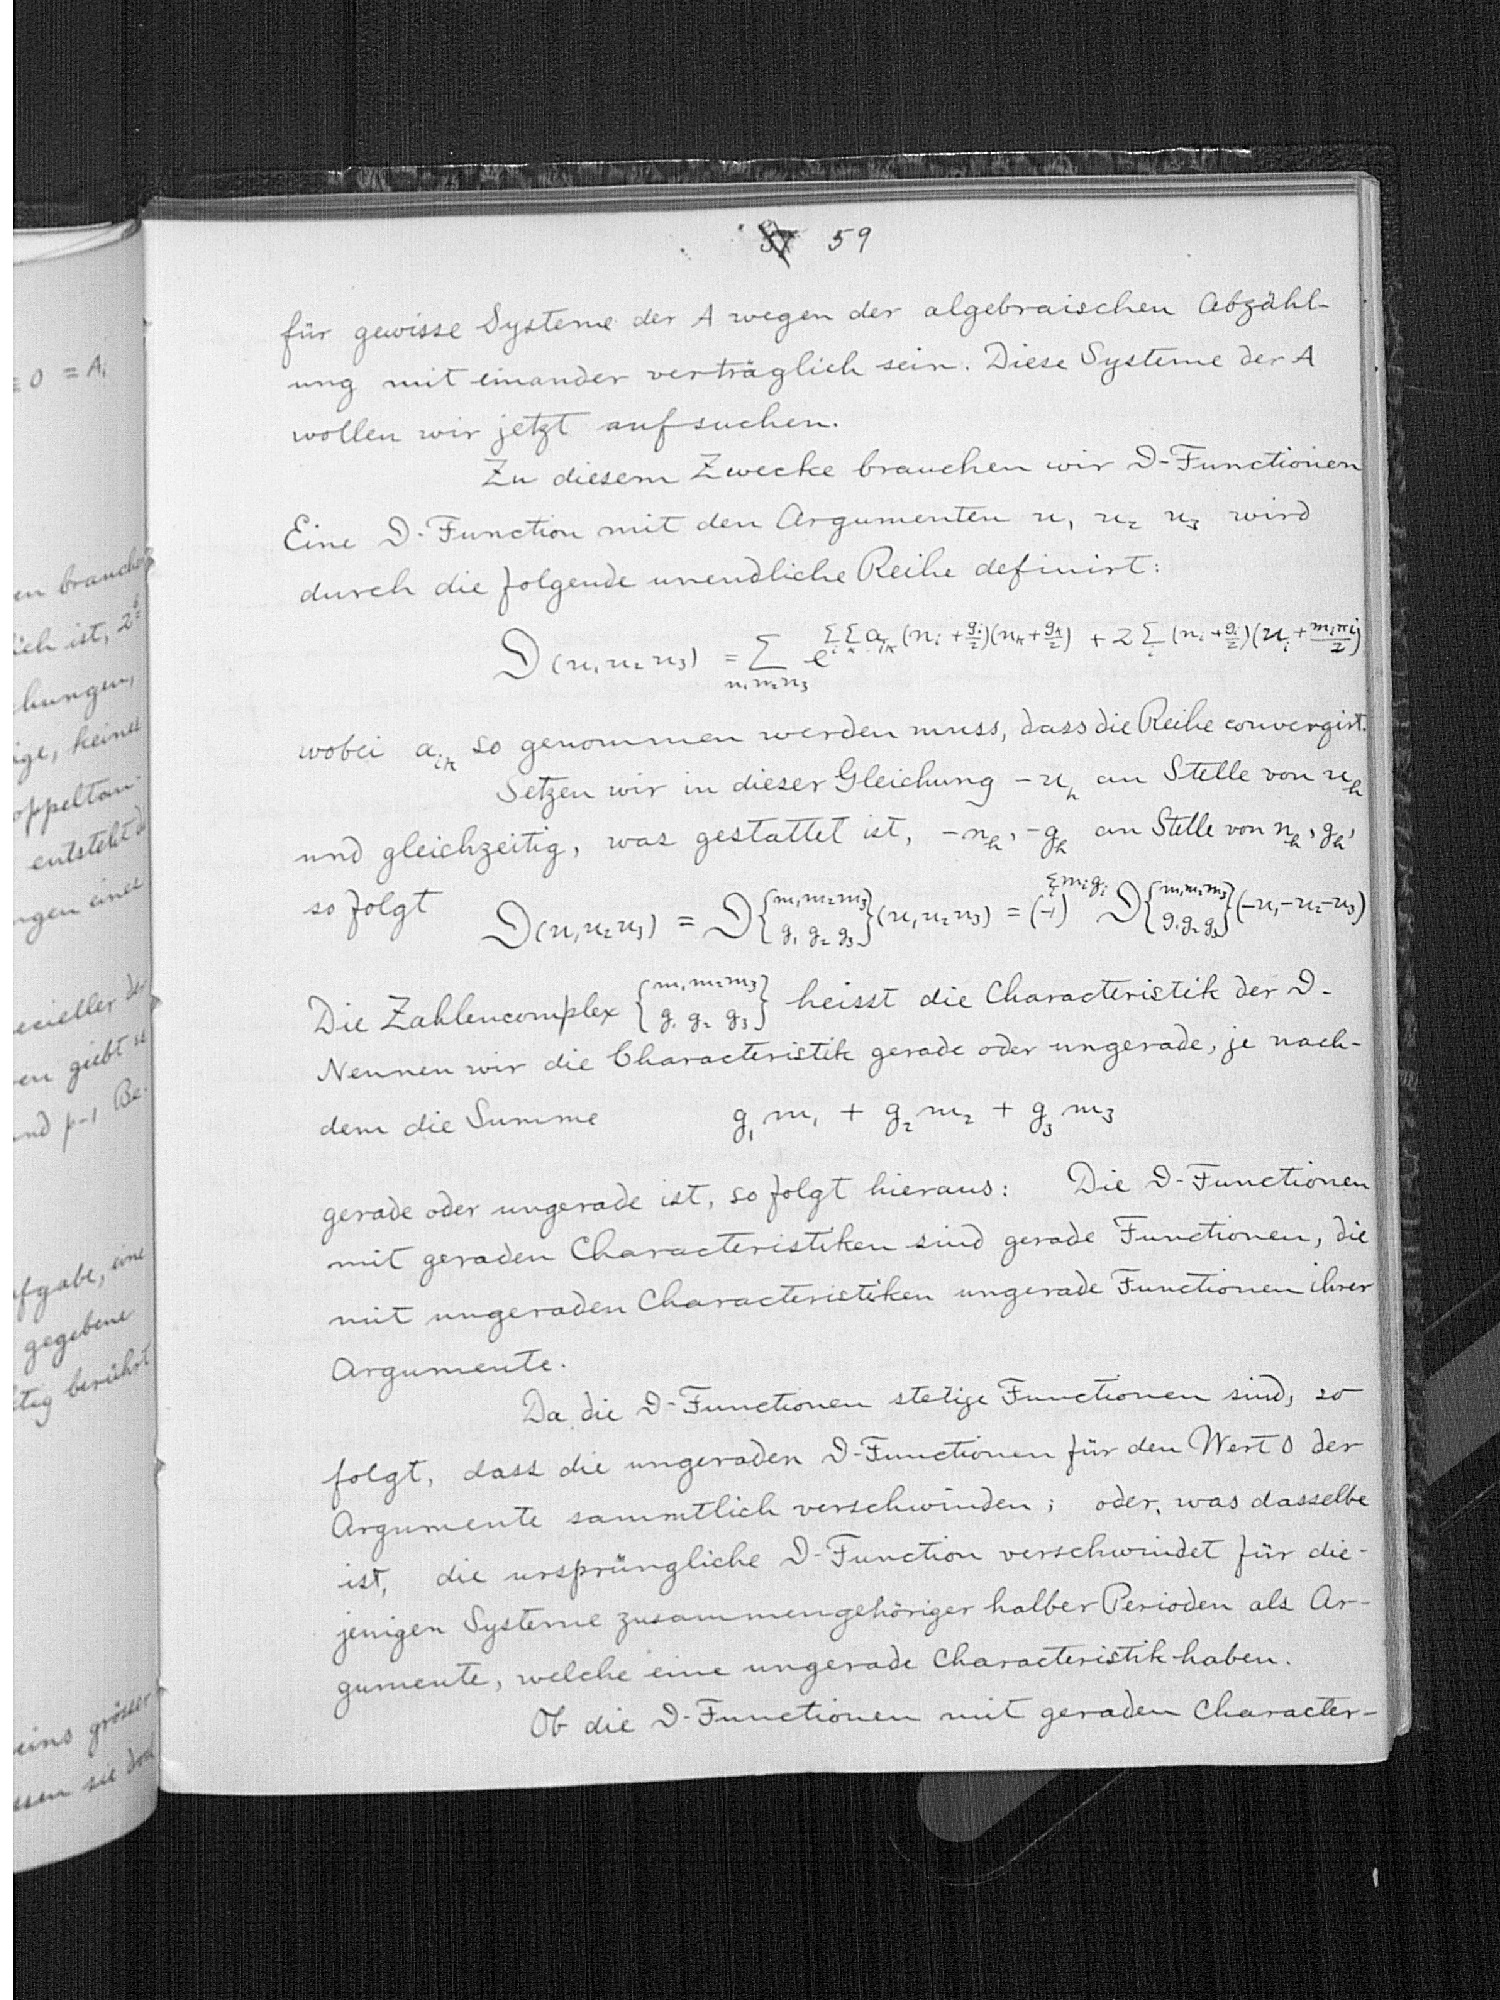 59
für gewisse Systeme der A wegen der algebraischen Abzähl-
ung mit einander verträglich sein. Diese Systeme der A
wollen wir jetzt aufsuchen.
Zu diesem Zwecke brauchen wir ϑ-Functionen
Eine ϑ-Function mit den Argumenten u₁ u₂ u₃ wird
durch die folgende unendliche Reihe definirt:
ϑ(u₁u₂u₃) = Σ_{n₁n₂n₃} e^{Σ_i Σ_k a_{ik}(n_i + g_i/2)(n_k + g_k/2) + 2Σ_i (n_i + g_i/2)(u_i + m_iπi/2)}
wobei a_{ik} so genommen werden muss, dass die Reihe convergirt.
Setzen wir in dieser Gleichung -u_h an Stelle von u_h
und gleichzeitig, was gestattet ist, -n_h, -g_h an Stelle von n_h, g_h,
so folgt ϑ(u₁u₂u₃) = ϑ{m₁m₂m₃ g₁g₂g₃}(u₁u₂u₃) = (-1)^{Σ_i m_i g_i} ϑ{m₁m₂m₃ g₁g₂g₃}(-u₁-u₂-u₃)
Die Zahlencomplex {m₁m₂m₃ g₁g₂g₃} heisst die Characteristik der ϑ-
Nennen wir die Characteristik gerade oder ungerade, je nach-
dem die Summe g₁m₁ + g₂m₂ + g₃m₃
gerade oder ungerade ist, so folgt hieraus: Die ϑ-Functionen
mit geraden Characteristiken sind gerade Functionen, die
mit ungeraden Characteristiken ungerade Functionen ihrer
Argumente.
Da die ϑ-Functionen stetige Functionen sind, so
folgt, dass die ungeraden ϑ-Functionen für den Wert 0 der
Argumente sammtlich verschwinden; oder, was dasselbe
ist, die ursprüngliche ϑ-Function verschwindet für die-
jenigen Systeme zusammengehöriger halber Perioden als Ar-
gumente, welche eine ungerade Characteristik haben.
Ob die ϑ-Functionen mit geraden Character-